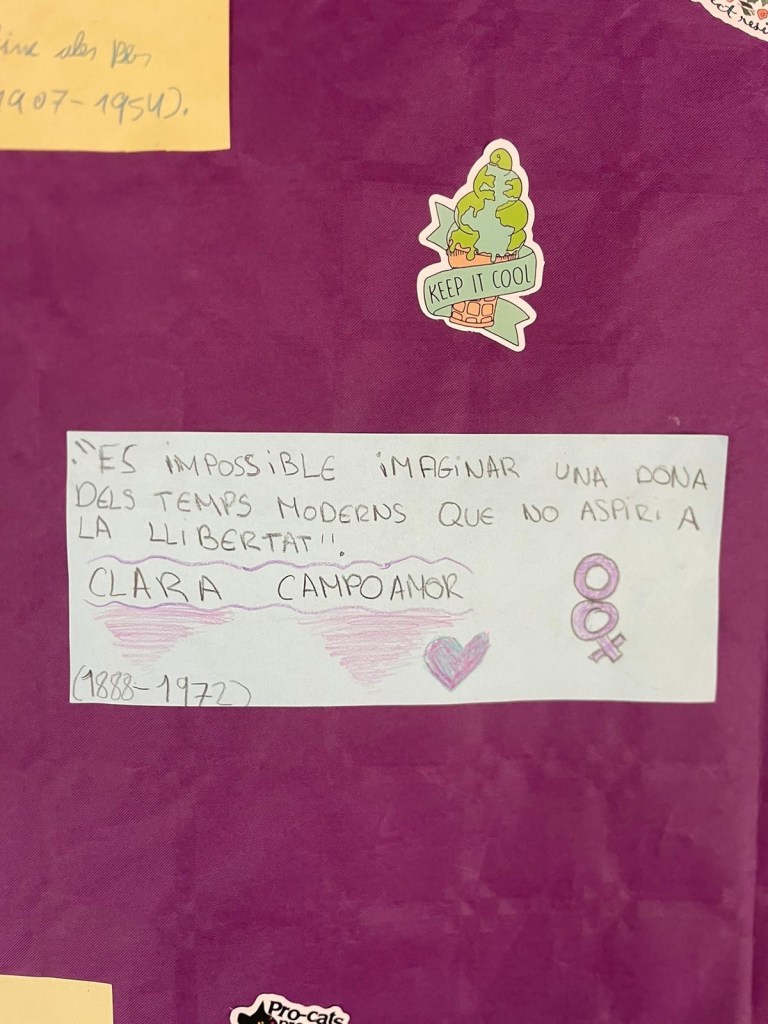 (1907-1954).
KEEP IT COOL
"ES IMPOSSIBLE IMAGINAR UNA DONA
DELS TEMPS MODERNS QUE NO ASPIRI A
LA LLIBERTAT".
CLARA CAMPOAMOR
(1888-1972)
Pro-cats